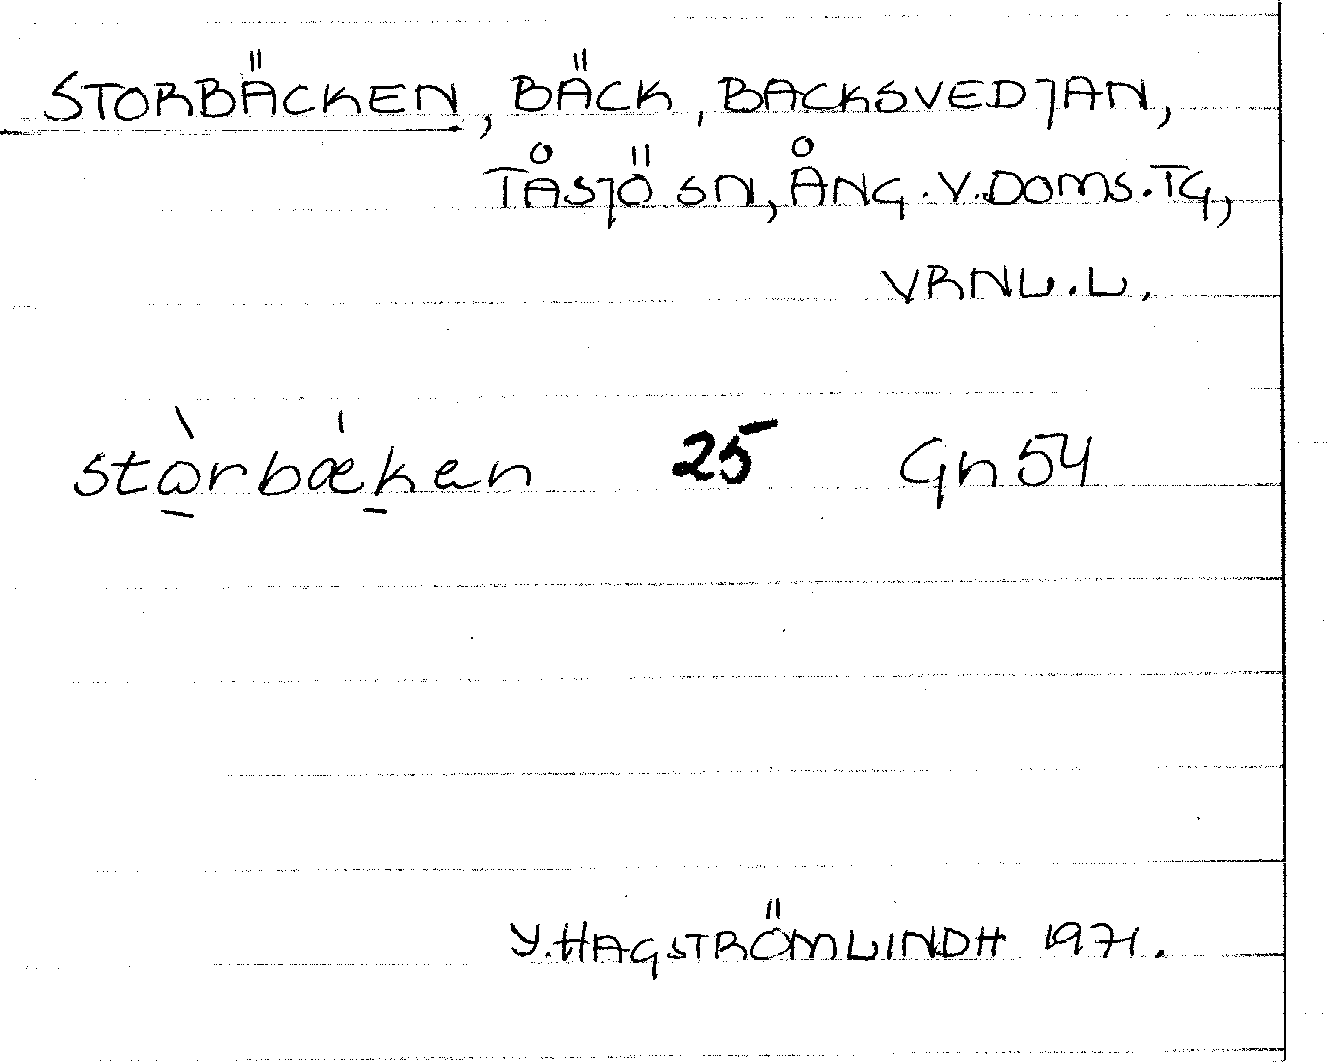 STORBÄCKEN, BÄCK, BACKSVEDJAN,
TÅSJÖ SN, ÅNG.V.DOMS.TG,
VRNL.L.
stòrbǽken 25 Gn 54
Y. HAGSTRÖMLINDH 1971.